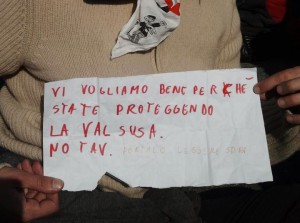 VI VOGLIAMO BENE PERCHÈ
STATE PROTEGGENDO
LA VAL SUSA.
NO TAV.